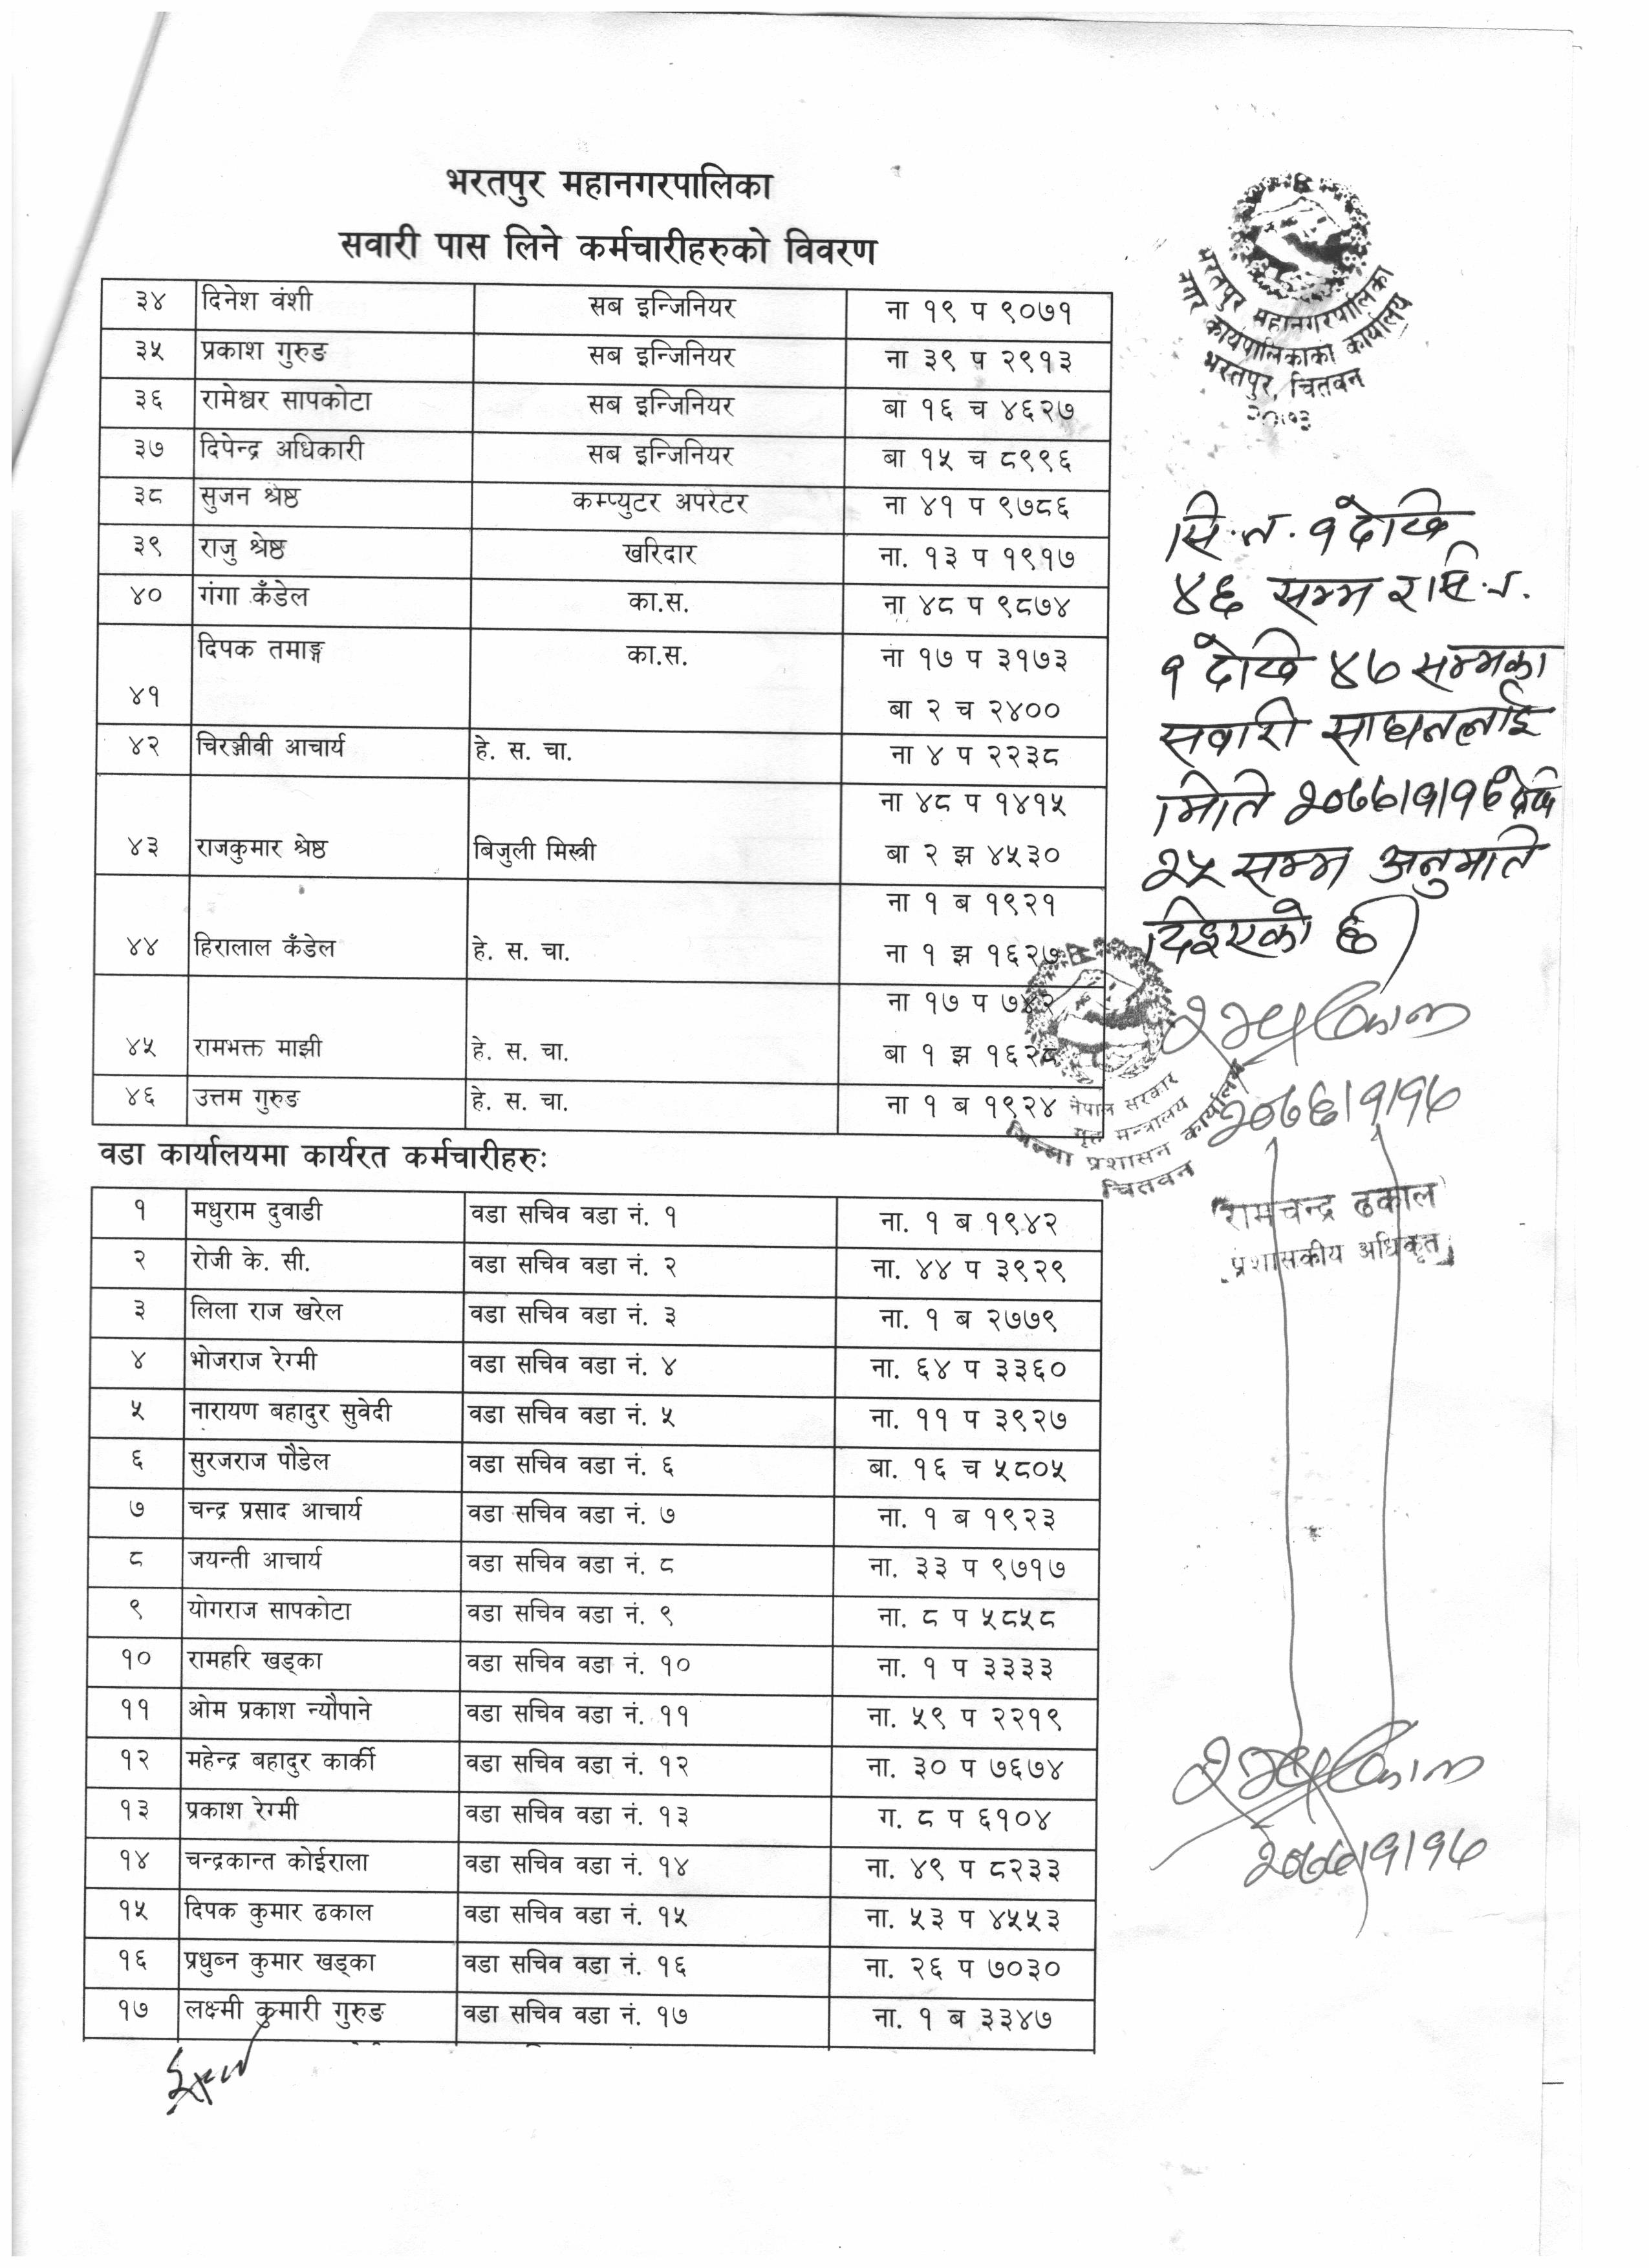 भरतपुर महानगरपालिका
सवारी पास लिने कर्मचारीहरुको विवरण
३४ दिनेश वंशी सब इन्जिनियर ना १९ प ९०७१
३५ प्रकाश गुरुङ सब इन्जिनियर ना ३९ प २९१३
३६ रामेश्वर सापकोटा सब इन्जिनियर बा १६ च ४६२७
३७ दिपेन्द्र अधिकारी सब इन्जिनियर बा १५ च ८९९६
३८ सुजन श्रेष्ठ कम्प्युटर अपरेटर ना ४१ प ९७८६
३९ राजु श्रेष्ठ खरिदार ना. १३ प १९१७
४० गंगा कँडेल का.स. ना ४८ प ९८७४
दिपक तमाङ्ग का.स. ना १७ प ३१७३
४१ बा २ च २४००
४२ चिरञ्जीवी आचार्य हे. स. चा. ना ४ प २२३८
ना ४८ प १४१५
४३ राजकुमार श्रेष्ठ बिजुली मिस्त्री बा २ झ ४५३०
ना १ ब १९२१
४४ हिरालाल कँडेल हे. स. चा. ना १ झ १६२७
ना १७ प ७४२
४५ रामभक्त माझी हे. स. चा. बा १ झ १६२८
४६ उत्तम गुरुङ हे. स. चा. ना १ ब १९२४
वडा कार्यालयमा कार्यरत कर्मचारीहरुः
१ मधुराम दुवाडी वडा सचिव वडा नं. १ ना. १ ब १९४२
२ रोजी के. सी. वडा सचिव वडा नं. २ ना. ४४ प ३९२९
३ लिला राज खरेल वडा सचिव वडा नं. ३ ना. १ ब २७७९
४ भोजराज रेग्मी वडा सचिव वडा नं. ४ ना. ६४ प ३३६०
५ नारायण बहादुर सुवेदी वडा सचिव वडा नं. ५ ना. ११ प ३९२७
६ सुरजराज पौडेल वडा सचिव वडा नं. ६ बा. १६ च ५८०५
७ चन्द्र प्रसाद आचार्य वडा सचिव वडा नं. ७ ना. १ ब १९२३
८ जयन्ती आचार्य वडा सचिव वडा नं. ८ ना. ३३ प ९७१७
९ योगराज सापकोटा वडा सचिव वडा नं. ९ ना. ८ प ५८५८
१० रामहरि खड्का वडा सचिव वडा नं. १० ना. १ प ३३३३
११ ओम प्रकाश न्यौपाने वडा सचिव वडा नं. ११ ना. ५९ प २२१९
१२ महेन्द्र बहादुर कार्की वडा सचिव वडा नं. १२ ना. ३० प ७६७४
१३ प्रकाश रेग्मी वडा सचिव वडा नं. १३ ग. ८ प ६१०४
१४ चन्द्रकान्त कोईराला वडा सचिव वडा नं. १४ ना. ४९ प ८२३३
१५ दिपक कुमार ढकाल वडा सचिव वडा नं. १५ ना. ५३ प ४५५३
१६ प्रधुब्न कुमार खड्का वडा सचिव वडा नं. १६ ना. २६ प ७०३०
१७ लक्ष्मी कुमारी गुरुङ वडा सचिव वडा नं. १७ ना. १ ब ३३४७
भरतपुर महानगरपालिका
नगर कार्यपालिकाको कार्यालय
भरतपुर, चितवन
२०७३
सि.न. १ देखि
४६ सम्म र सि.न.
१ देखि ४७ सम्मका
सवारी साधनलाई
मिति २०७७।१।१६ देखि
२५ सम्म अनुमति
दिइएको छ
नेपाल सरकार
गृह मन्त्रालय
जिल्ला प्रशासन कार्यालय
चितवन
रामचन्द्र ढकाल
प्रशासकीय अधिकृत